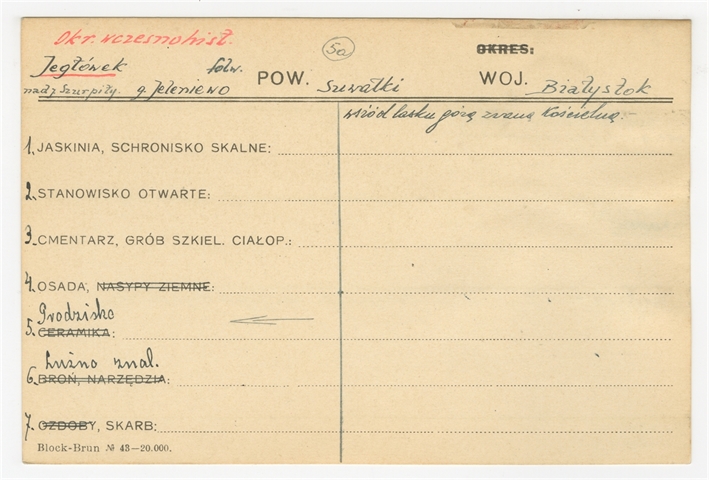 Okr. wczesnohist.
5a
OKRES:
Jegłówek folw. POW. Suwałki WOJ. Białystok
nad j. Szurpiły. g. Jeleniewo
wśród lasku górą zwaną Kościelną.
1. JASKINIA, SCHRONISKO SKALNE:
2. STANOWISKO OTWARTE:
3. CMENTARZ, GRÓB SZKIEL. CIAŁOP.:
4. OSADA, NASYPY ZIEMNE:
Grodzisko
5. CERAMIKA:
Luźno znal.
6. BROŃ, NARZĘDZIA:
7. OZDOBY, SKARB:
Block-Brun № 43—20.000.